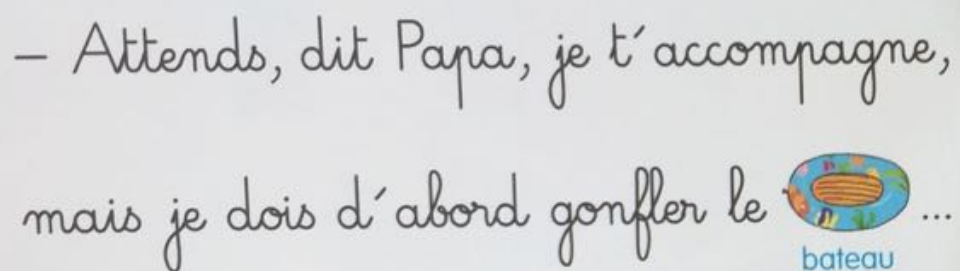 – Attends, dit Papa, je t'accompagne,
mais je dois d'abord gonfler le ...
bateau